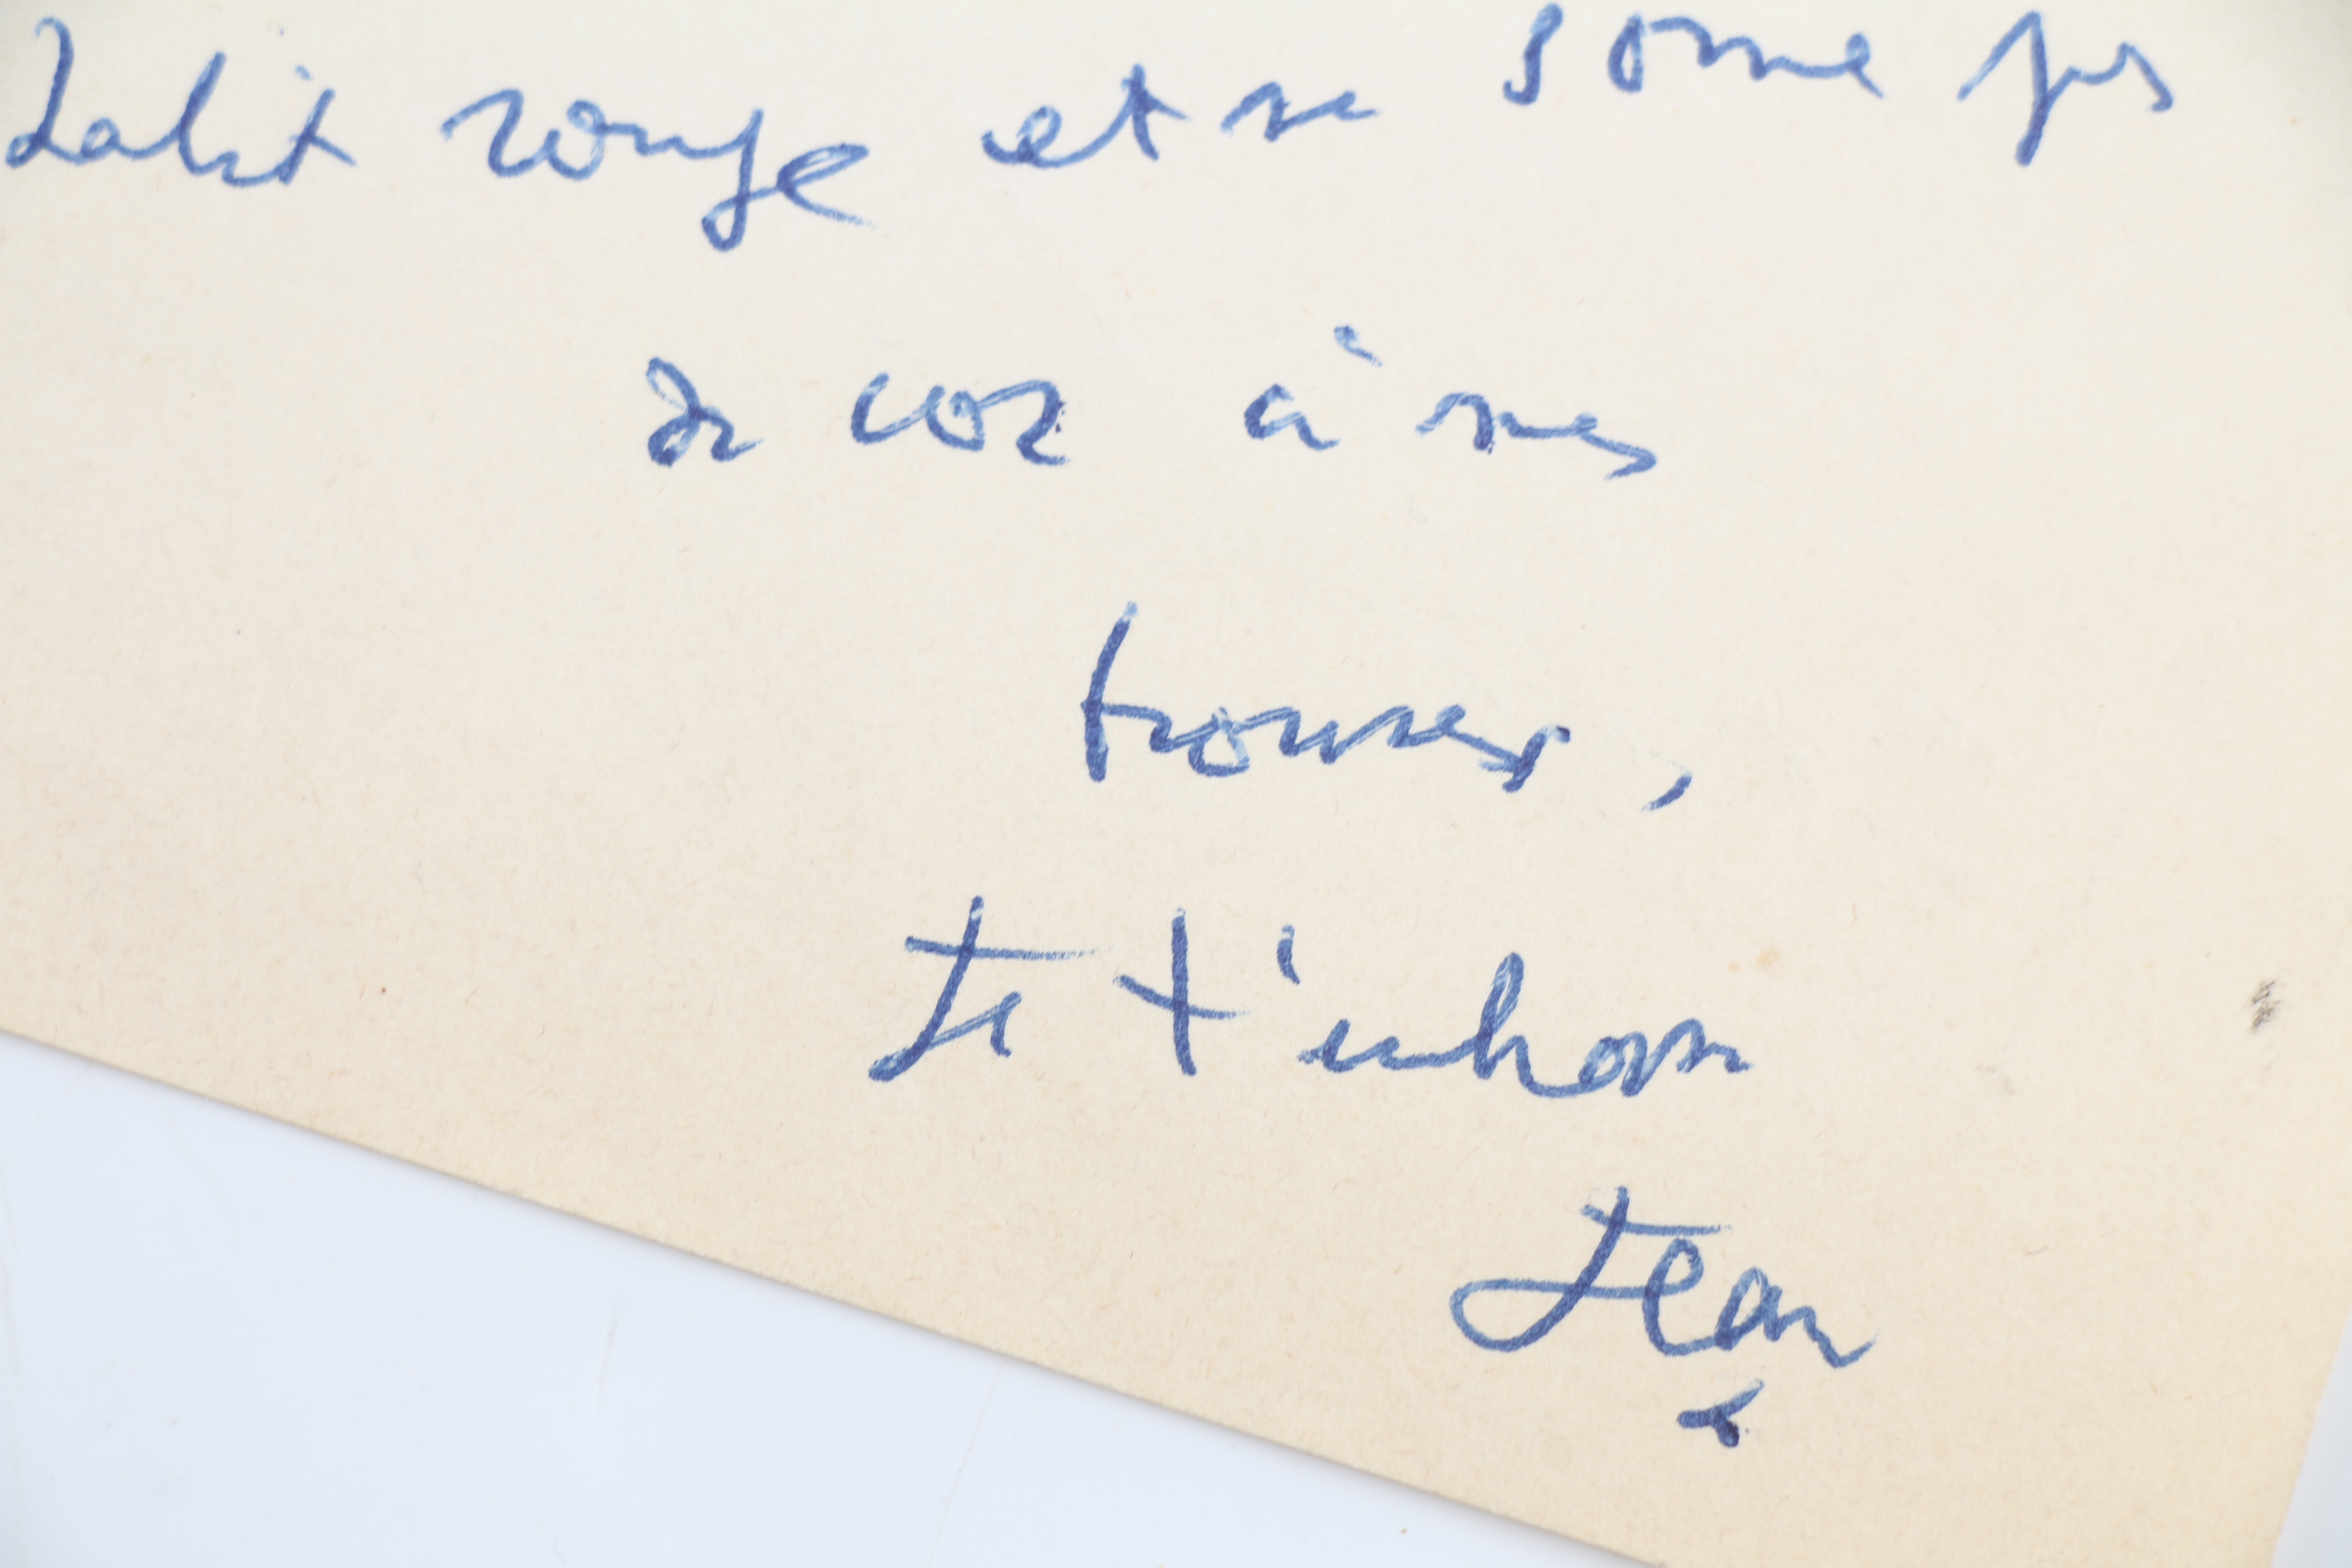 habit rouge et ne sonne pas
de cor à mes
trousses,
Je t'embrasse
Jean